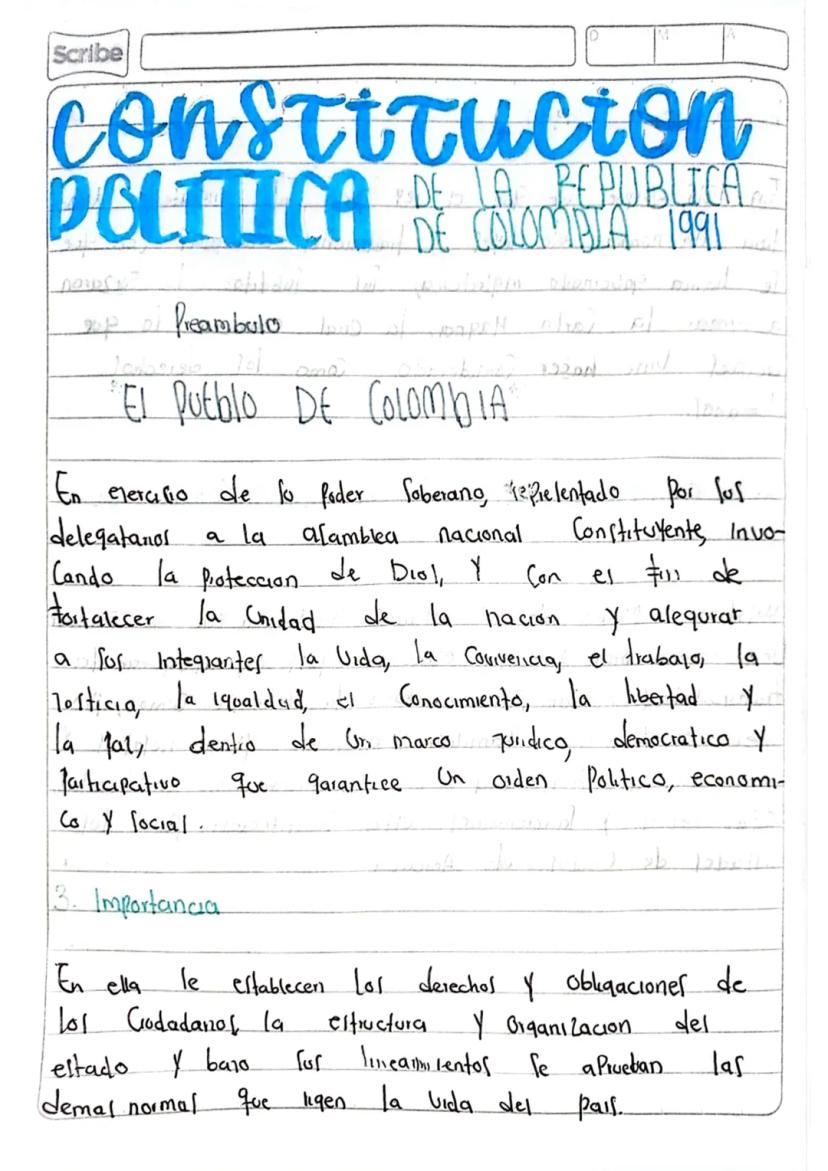 Scribe
D M A
Constitucion
POLITICA DE LA REPUBLICA
DE COLOMBIA 1991
Preambulo
"El Pueblo DE COLOMBIA"
En ejercicio de su Poder Soberano, representado por sus
delegatarios a la asamblea nacional Constituyente, Invo-
Cando la Proteccion de Dios, Y Con el fin de
fortalecer la Unidad de la nacion y asegurar
a sus Integrantes la Vida, La Convivencia, el trabajo, la
Justicia, la igualdad, el Conocimiento, la libertad y
la Paz, dentro de Un marco Juridico, democratico y
Participativo que garantice Un orden Politico, economi-
Co y Social.
3. Importancia
En ella se establecen Los derechos y Obligaciones de
Los Ciudadanos, la estructura y Organizacion del
estado y bajo sus lineamientos Se aPrueban las
demas normas que rigen la Vida del Pais.